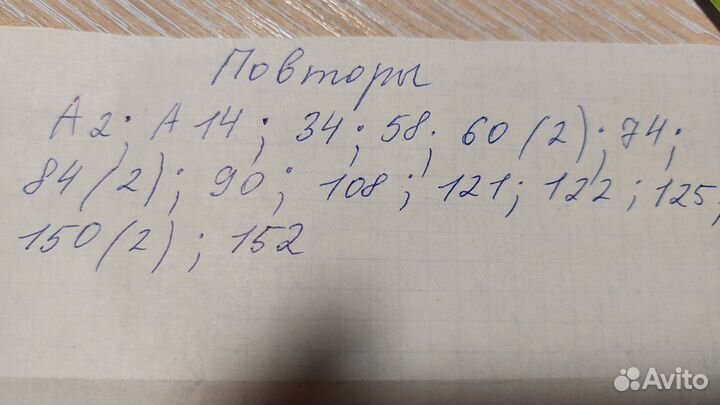 Повторы
А2; А14; 34; 58; 60(2); 74;
84(2); 90; 108; 121; 122; 125;
150(2); 152
Avito